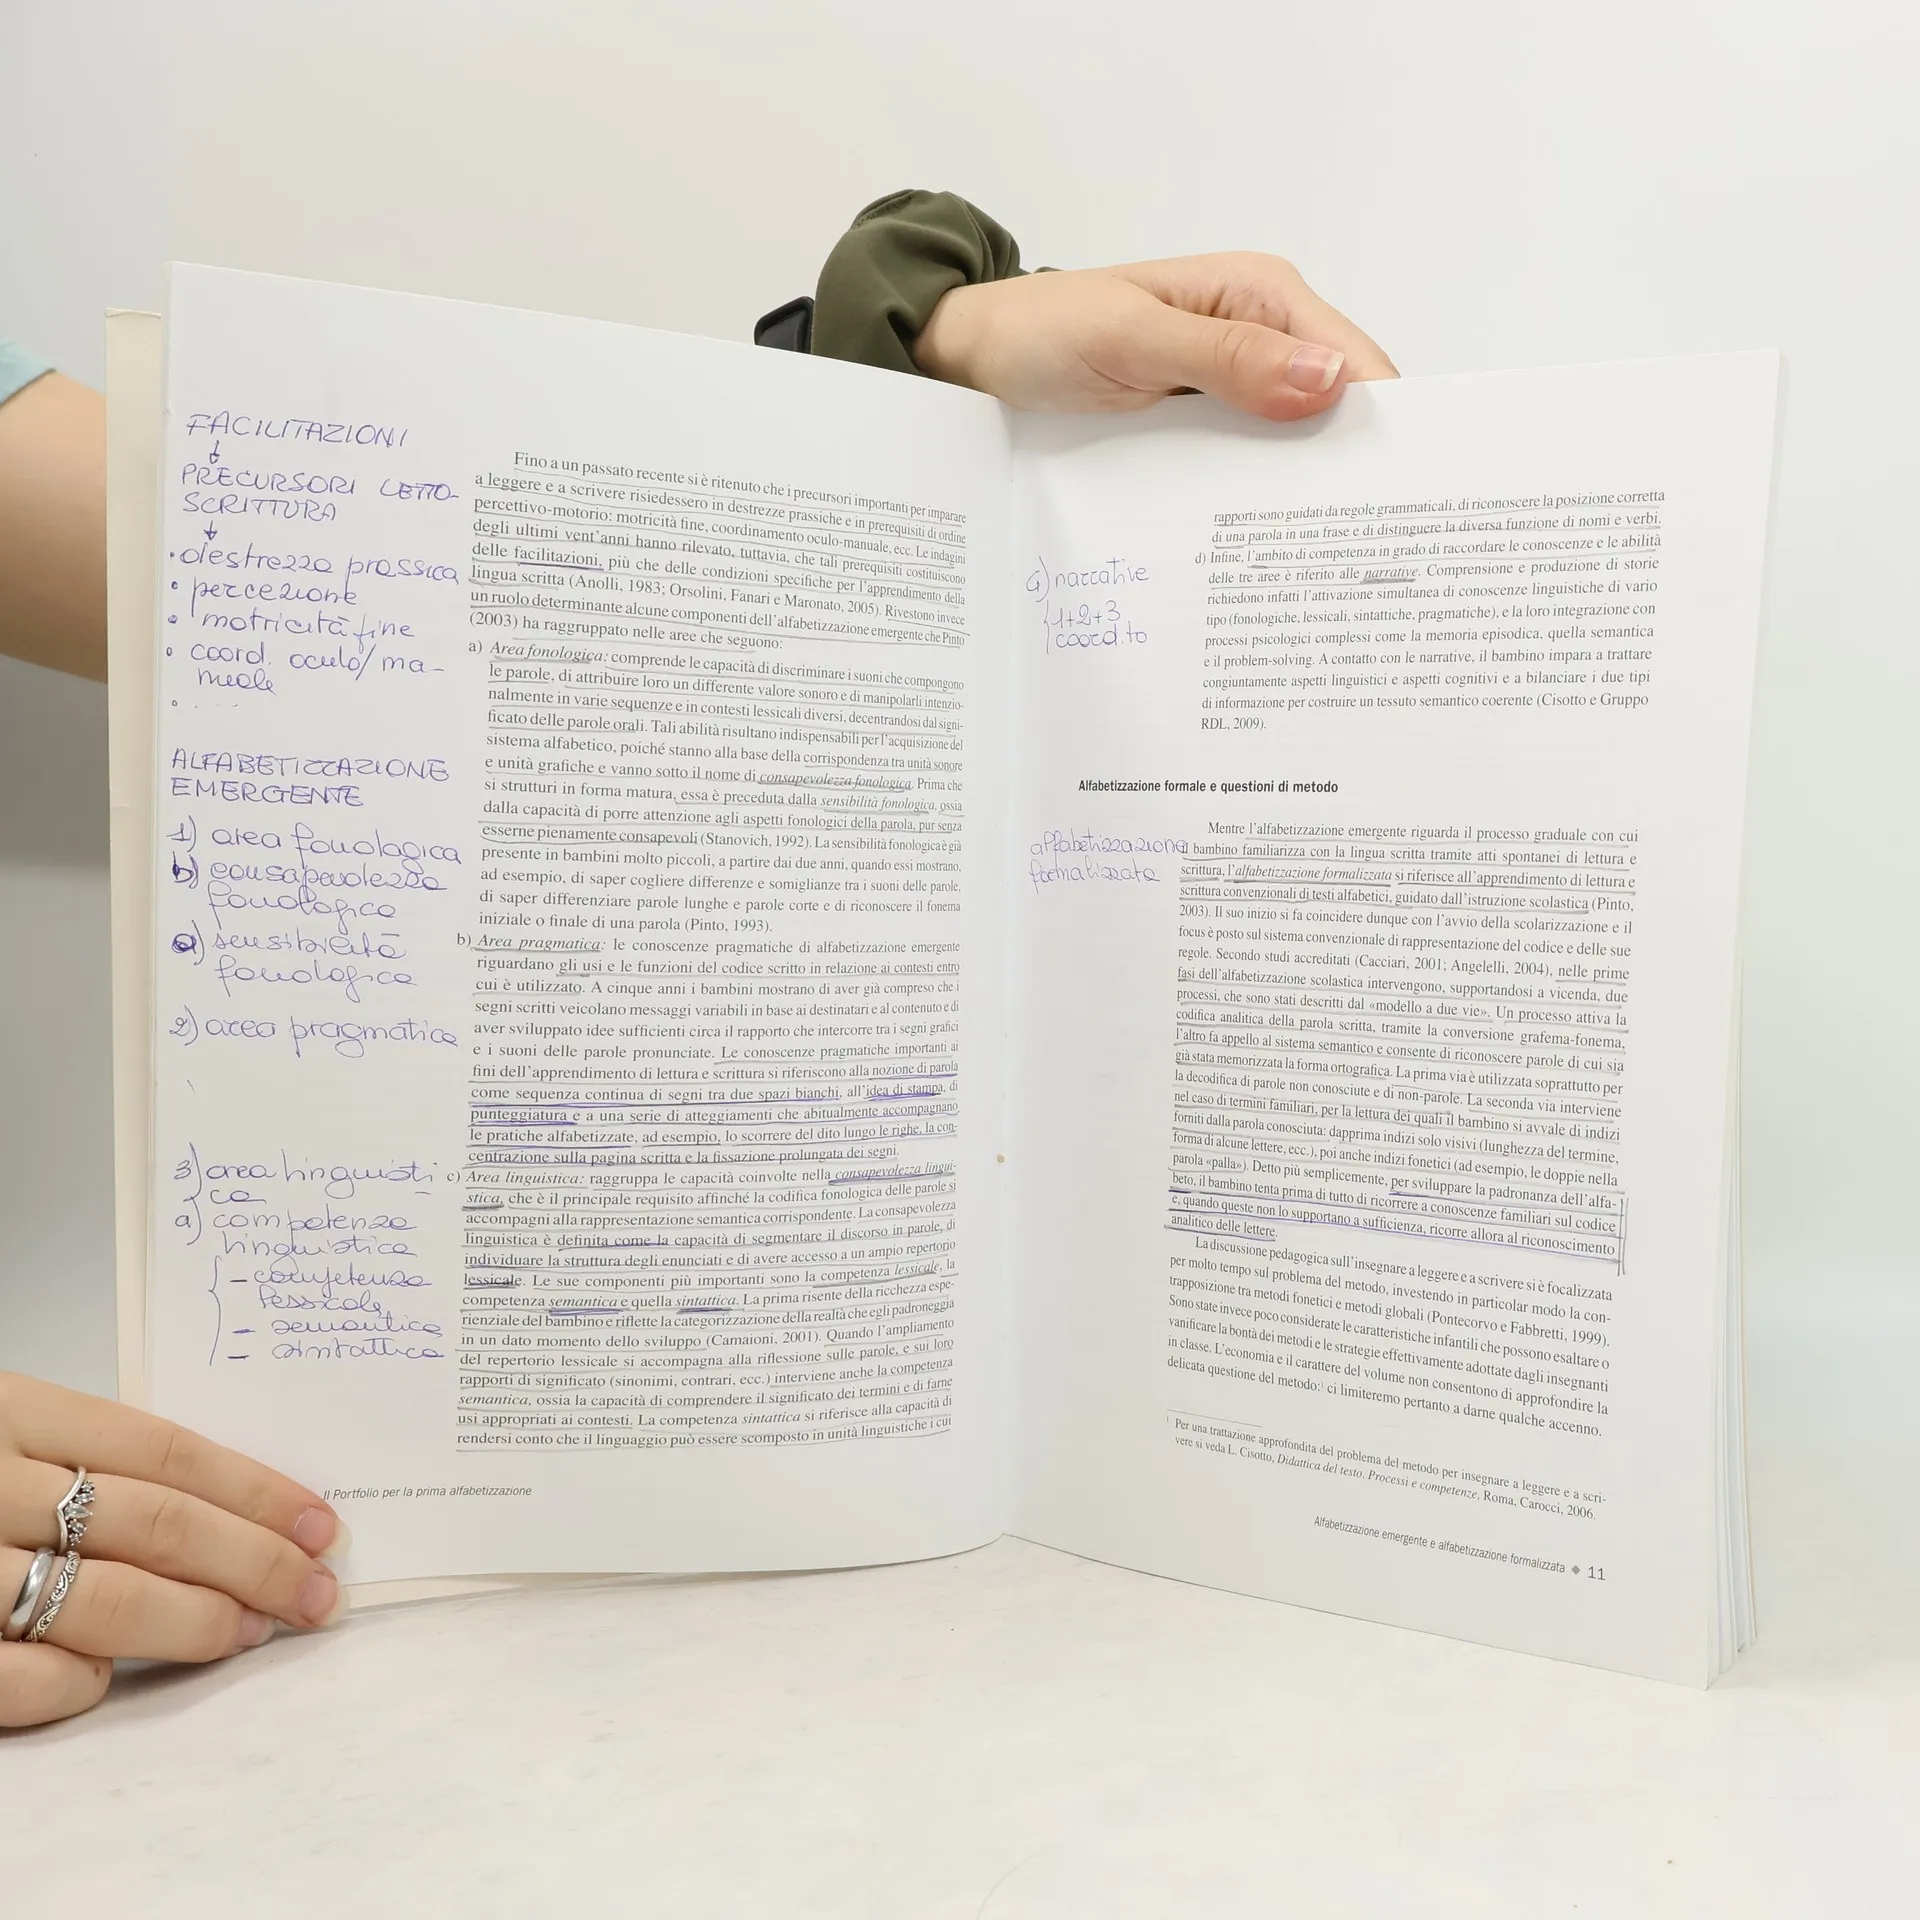 FACILITAZIONI
↓
PRECURSORI LETTO-
SCRITTURA
↓
• destrezza prassica
• percezione
• motricità fine
• coord. oculo/ma-
nuale
• . . . .
ALFABETIZZAZIONE
EMERGENTE
1) area fonologica
b) consapevolezza
fonologica
a) sensibilità
fonologica
2) area pragmatica
3) area linguisti
ca
a) competenza
linguistica
– competenza
lessicale
– semantica
– sintattica
Fino a un passato recente si è ritenuto che i precursori importanti per imparare
a leggere e a scrivere risiedessero in destrezze prassiche e in prerequisiti di ordine
percettivo-motorio: motricità fine, coordinamento oculo-manuale, ecc. Le indagini
degli ultimi vent'anni hanno rilevato, tuttavia, che tali prerequisiti costituiscono
delle facilitazioni, più che delle condizioni specifiche per l'apprendimento della
lingua scritta (Anolli, 1983; Orsolini, Fanari e Maronato, 2005). Rivestono invece
un ruolo determinante alcune componenti dell'alfabetizzazione emergente che Pinto
(2003) ha raggruppato nelle aree che seguono:
a) Area fonologica: comprende le capacità di discriminare i suoni che compongono
le parole, di attribuire loro un differente valore sonoro e di manipolarli intenzio-
nalmente in varie sequenze e in contesti lessicali diversi, decentrandosi dal signi-
ficato delle parole orali. Tali abilità risultano indispensabili per l'acquisizione del
sistema alfabetico, poiché stanno alla base della corrispondenza tra unità sonore
e unità grafiche e vanno sotto il nome di consapevolezza fonologica. Prima che
si strutturi in forma matura, essa è preceduta dalla sensibilità fonologica, ossia
dalla capacità di porre attenzione agli aspetti fonologici della parola, pur senza
esserne pienamente consapevoli (Stanovich, 1992). La sensibilità fonologica è già
presente in bambini molto piccoli, a partire dai due anni, quando essi mostrano,
ad esempio, di saper cogliere differenze e somiglianze tra i suoni delle parole,
di saper differenziare parole lunghe e parole corte e di riconoscere il fonema
iniziale o finale di una parola (Pinto, 1993).
b) Area pragmatica: le conoscenze pragmatiche di alfabetizzazione emergente
riguardano gli usi e le funzioni del codice scritto in relazione ai contesti entro
cui è utilizzato. A cinque anni i bambini mostrano di aver già compreso che i
segni scritti veicolano messaggi variabili in base ai destinatari e al contenuto e di
aver sviluppato idee sufficienti circa il rapporto che intercorre tra i segni grafici
e i suoni delle parole pronunciate. Le conoscenze pragmatiche importanti ai
fini dell'apprendimento di lettura e scrittura si riferiscono alla nozione di parola
come sequenza continua di segni tra due spazi bianchi, all'idea di stampa, di
punteggiatura e a una serie di atteggiamenti che abitualmente accompagnano
le pratiche alfabetizzate, ad esempio, lo scorrere del dito lungo le righe, la con-
centrazione sulla pagina scritta e la fissazione prolungata dei segni.
c) Area linguistica: raggruppa le capacità coinvolte nella consapevolezza lingui-
stica, che è il principale requisito affinché la codifica fonologica delle parole si
accompagni alla rappresentazione semantica corrispondente. La consapevolezza
linguistica è definita come la capacità di segmentare il discorso in parole, di
individuare la struttura degli enunciati e di avere accesso a un ampio repertorio
lessicale. Le sue componenti più importanti sono la competenza lessicale, la
competenza semantica e quella sintattica. La prima risente della ricchezza espe-
rienziale del bambino e riflette la categorizzazione della realtà che egli padroneggia
in un dato momento dello sviluppo (Camaioni, 2001). Quando l'ampliamento
del repertorio lessicale si accompagna alla riflessione sulle parole, e sui loro
rapporti di significato (sinonimi, contrari, ecc.) interviene anche la competenza
semantica, ossia la capacità di comprendere il significato dei termini e di farne
usi appropriati ai contesti. La competenza sintattica si riferisce alla capacità di
rendersi conto che il linguaggio può essere scomposto in unità linguistiche i cui
Il Portfolio per la prima alfabetizzazione
rapporti sono guidati da regole grammaticali, di riconoscere la posizione corretta
di una parola in una frase e di distinguere la diversa funzione di nomi e verbi.
d) Infine, l'ambito di competenza in grado di raccordare le conoscenze e le abilità
delle tre aree è riferito alle narrative. Comprensione e produzione di storie
richiedono infatti l'attivazione simultanea di conoscenze linguistiche di vario
tipo (fonologiche, lessicali, sintattiche, pragmatiche), e la loro integrazione con
processi psicologici complessi come la memoria episodica, quella semantica
e il problem-solving. A contatto con le narrative, il bambino impara a trattare
congiuntamente aspetti linguistici e aspetti cognitivi e a bilanciare i due tipi
di informazione per costruire un tessuto semantico coerente (Cisotto e Gruppo
RDL, 2009).
4) narrative
1+2+3
coord.to
Alfabetizzazione formale e questioni di metodo
alfabetizzazione
formalizzata
Mentre l'alfabetizzazione emergente riguarda il processo graduale con cui
il bambino familiarizza con la lingua scritta tramite atti spontanei di lettura e
scrittura, l'alfabetizzazione formalizzata si riferisce all'apprendimento di lettura e
scrittura convenzionali di testi alfabetici, guidato dall'istruzione scolastica (Pinto,
2003). Il suo inizio si fa coincidere dunque con l'avvio della scolarizzazione e il
focus è posto sul sistema convenzionale di rappresentazione del codice e delle sue
regole. Secondo studi accreditati (Cacciari, 2001; Angelelli, 2004), nelle prime
fasi dell'alfabetizzazione scolastica intervengono, supportandosi a vicenda, due
processi, che sono stati descritti dal «modello a due vie». Un processo attiva la
codifica analitica della parola scritta, tramite la conversione grafema-fonema,
l'altro fa appello al sistema semantico e consente di riconoscere parole di cui sia
già stata memorizzata la forma ortografica. La prima via è utilizzata soprattutto per
la decodifica di parole non conosciute e di non-parole. La seconda via interviene
nel caso di termini familiari, per la lettura dei quali il bambino si avvale di indizi
forniti dalla parola conosciuta: dapprima indizi solo visivi (lunghezza del termine,
forma di alcune lettere, ecc.), poi anche indizi fonetici (ad esempio, le doppie nella
parola «palla»). Detto più semplicemente, per sviluppare la padronanza dell'alfa-
beto, il bambino tenta prima di tutto di ricorrere a conoscenze familiari sul codice
e, quando queste non lo supportano a sufficienza, ricorre allora al riconoscimento
analitico delle lettere.
La discussione pedagogica sull'insegnare a leggere e a scrivere si è focalizzata
per molto tempo sul problema del metodo, investendo in particolar modo la con-
trapposizione tra metodi fonetici e metodi globali (Pontecorvo e Fabbretti, 1999).
Sono state invece poco considerate le caratteristiche infantili che possono esaltare o
vanificare la bontà dei metodi e le strategie effettivamente adottate dagli insegnanti
in classe. L'economia e il carattere del volume non consentono di approfondire la
delicata questione del metodo:¹ ci limiteremo pertanto a darne qualche accenno.
¹ Per una trattazione approfondita del problema del metodo per insegnare a leggere e a scri-
vere si veda L. Cisotto, Didattica del testo. Processi e competenze, Roma, Carocci, 2006.
Alfabetizzazione emergente e alfabetizzazione formalizzata ◆ 11